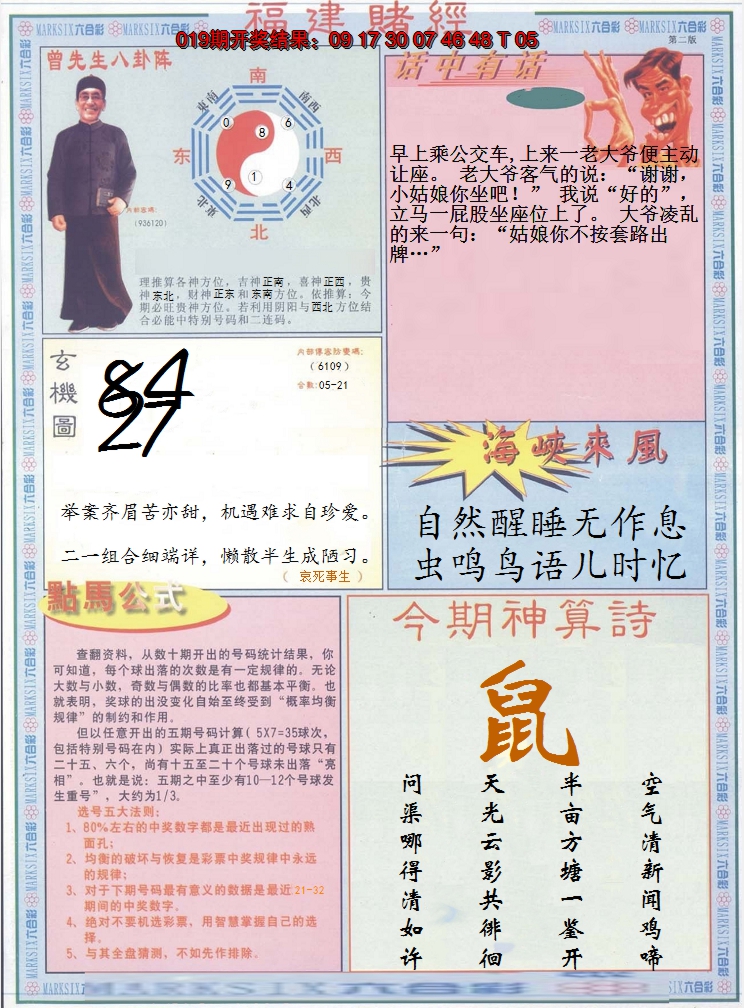 福建賭經
019期开奖结果：09 17 30 07 46 48 T 05
MARKSIX六合彩
第二版
曾先生八卦阵
南
东南
南西
0
8
6
东
西
9
1
4
东北
北西
北
内部密码：
（936120）
理推算各神方位，吉神正南，喜神正西，贵
神东北，财神正东和东南方位。依推算：今
期必旺贵神方位。若利用阴阳与西北方位结
合必能中特别号码和二连码。
话中有话
早上乘公交车,上来一老大爷便主动
让座。 老大爷客气的说：“谢谢，
小姑娘你坐吧！” 我说“好的”，
立马一屁股坐座位上了。 大爷凌乱
的来一句：“姑娘你不按套路出
牌…”
玄機圖
84
27
（6109）
合数:05-21
举案齐眉苦亦甜，机遇难求自珍爱。
二一组合细端详，懒散半生成陋习。
（ 哀死事生 ）
海峽來風
自然醒睡无作息
虫鸣鸟语儿时忆
點馬公式
查翻资料，从数十期开出的号码统计结果，你
可知道，每个球出落的次数是有一定规律的。无论
大数与小数，奇数与偶数的比率也都基本平衡。也
就表明，奖球的出没变化自始至终受到“概率均衡
规律”的制约和作用。
但以任意开出的五期号码计算( 5X7=35球次，
包括特别号码在内) 实际上真正出落过的号球只有
二十五、六个，尚有十五至二十个号球未出落“亮
相”。也就是说：五期之中至少有10—12个号球发
生重号”，大约为1/3。
选号五大法则：
1、80%左右的中奖数字都是最近出现过的熟
面孔；
2、均衡的破坏与恢复是彩票中奖规律中永远
的规律；
3、对于下期号码最有意义的数据是最近21-32
期间的中奖数字。
4、绝对不要机选彩票，用智慧掌握自己的选
择。
5、与其全盘猜测，不如先作排除。
今期神算詩
鼠
空气清新闻鸡啼
半亩方塘一鉴开
天光云影共徘徊
问渠哪得清如许